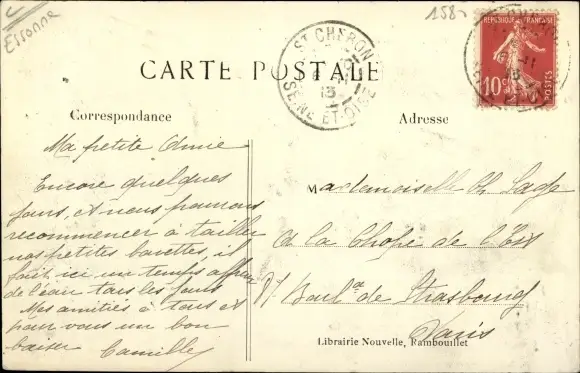 Essonne
158
REPUBLIQUE FRANÇAISE
10c
POSTES
ST CHERON
13
SEINE ET-OISE
CARTE POSTALE
Correspondance
Adresse
Ma petite Amie
Encore quelques
jours, et nous pourrons
recommencer à tailler
nos petites bavettes, il
fait ici un temps affreux
de l'eau tous les jours
Mes amitiés à tous et
pour vous un bon
baiser Camille
Mademoiselle Ch
A la Chope de l'Est
Boul de Strasbourg
Paris
Librairie Nouvelle, Rambouillet